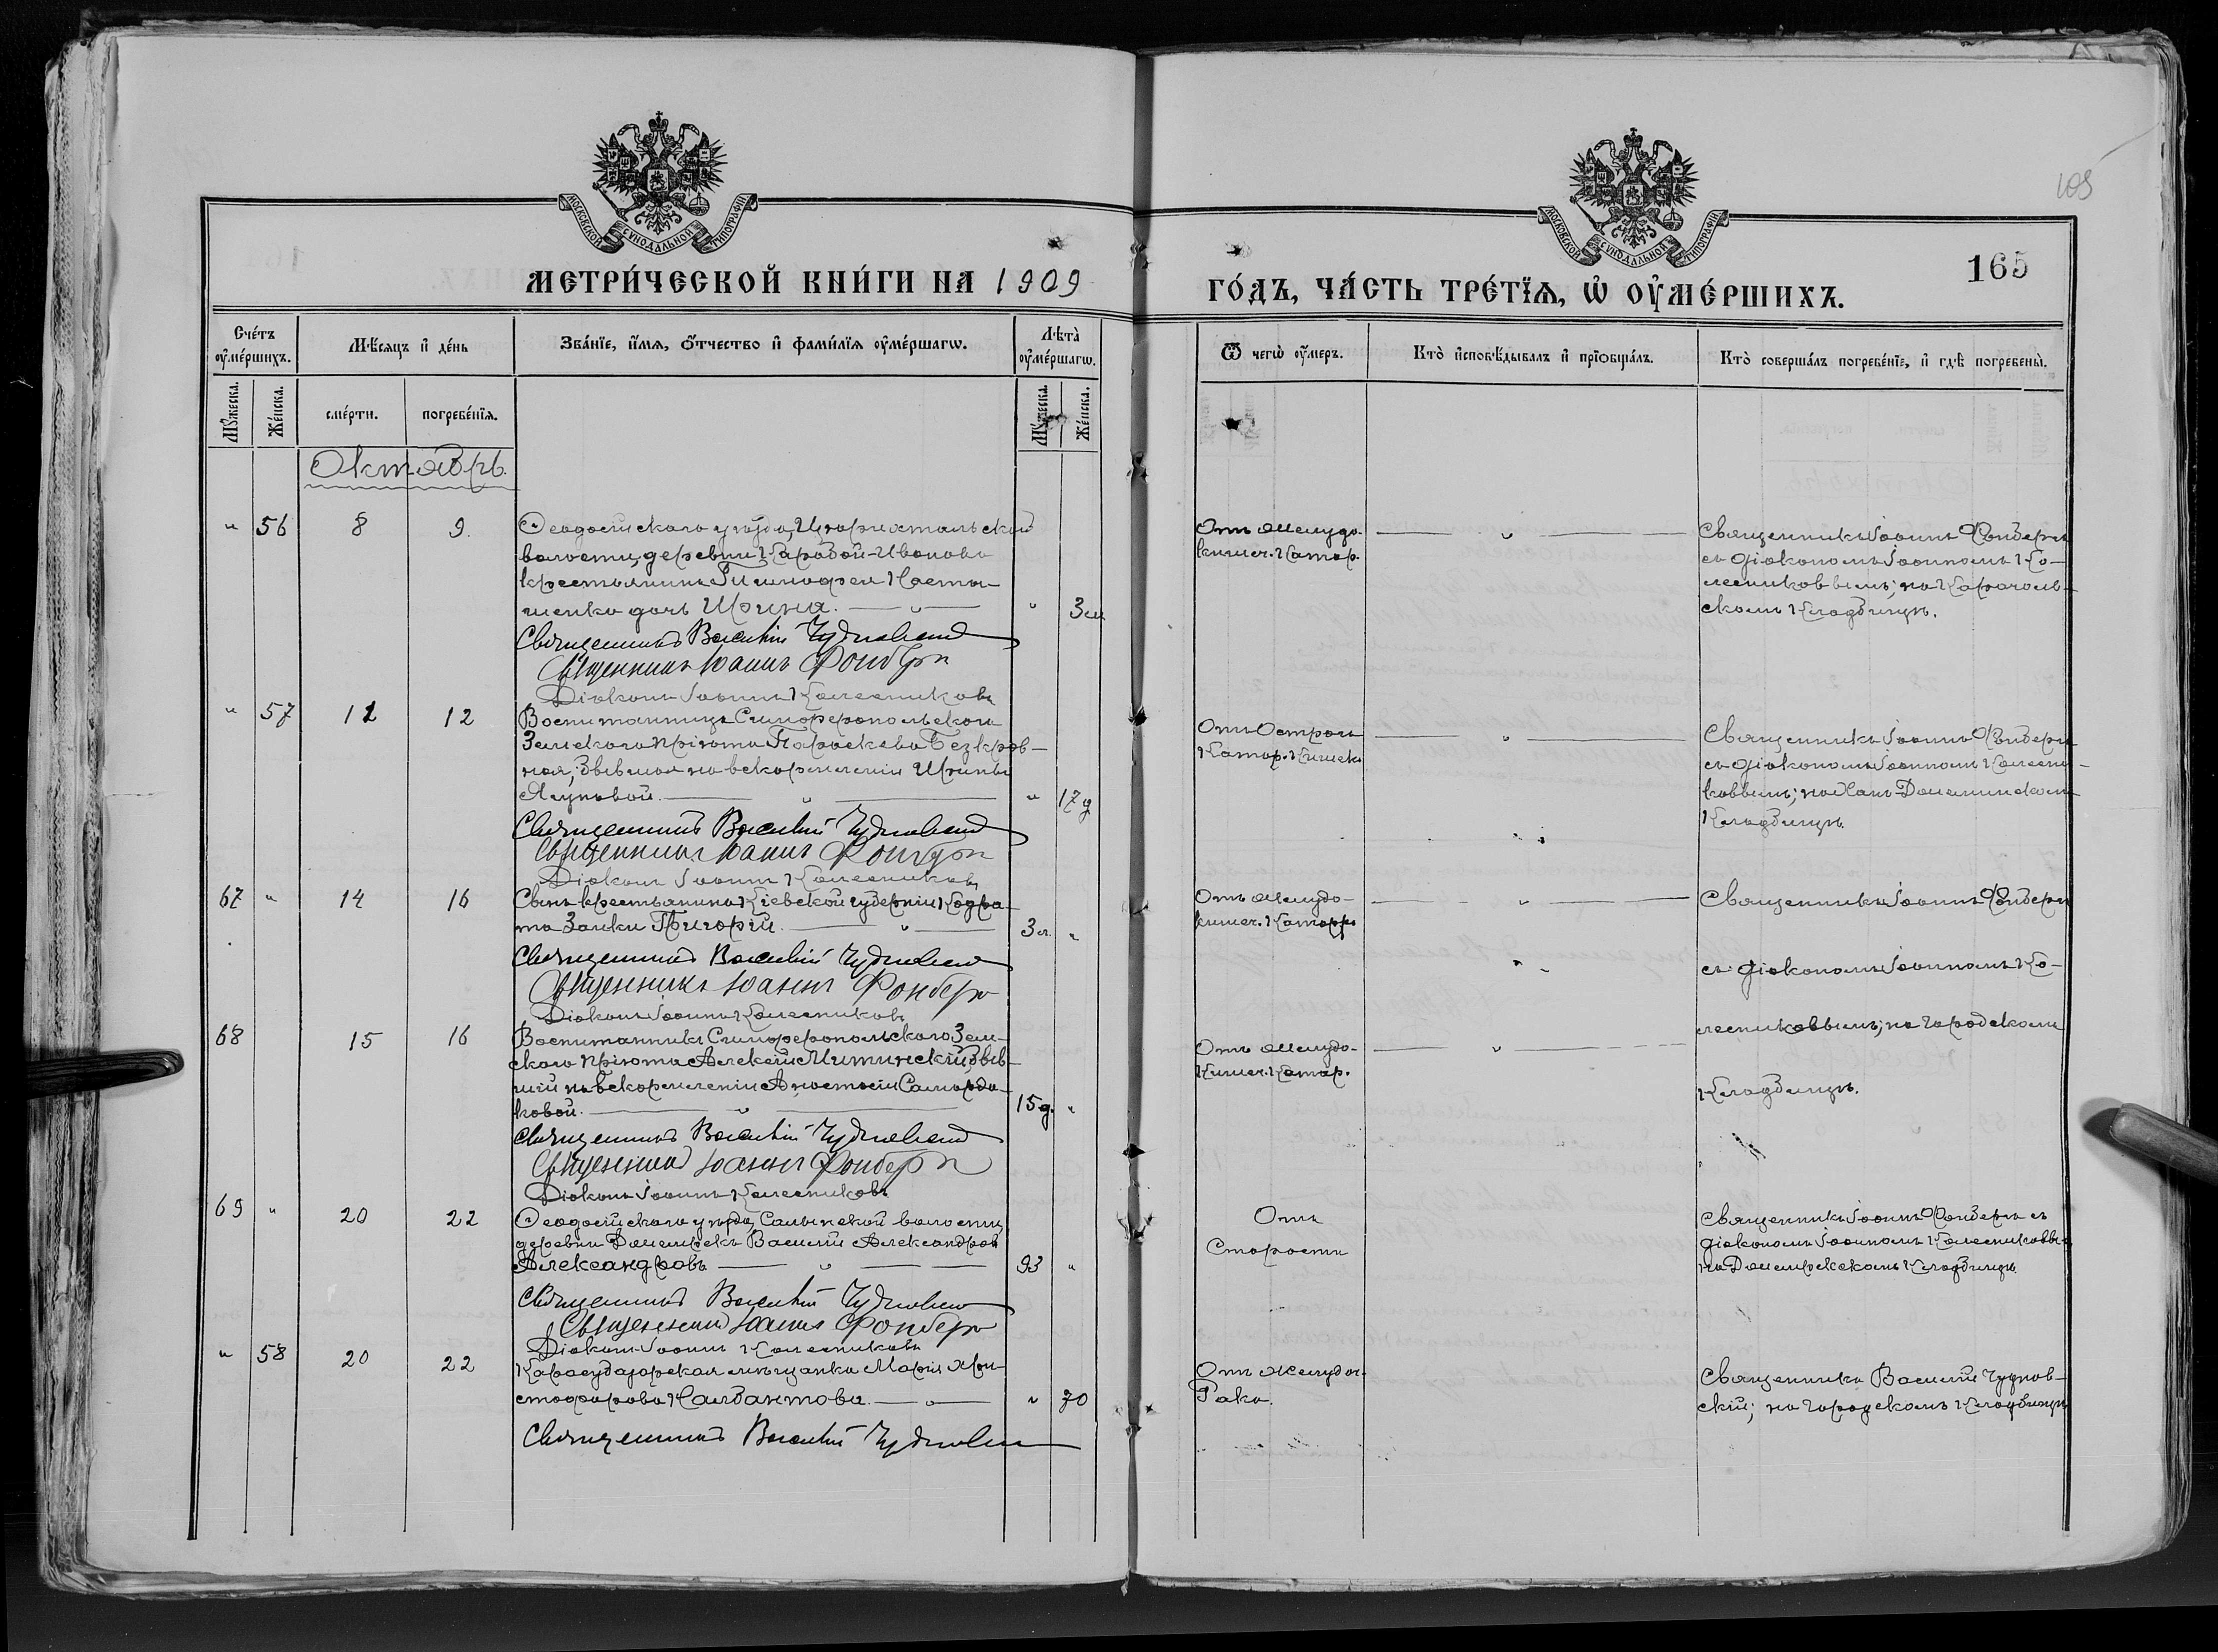 105
МОСКОВСКОЙ СѴНОДАЛЬНОЙ ТИПОГРАФІИ
МОСКОВСКОЙ СѴНОДАЛЬНОЙ ТИПОГРАФІИ
165
МЕТРИ́ЧЕСКОЙ КНИ́ГИ НА 1909
ГО́ДЪ, ЧА́СТЬ ТРЕ́ТЇѦ, Ѡ҆ ОУ҆МЕ́РШИХЪ.
Сче́тъ оу҆ме́ршихъ.
Мѣ́сяцъ и҆ де́нь
Зва́нїе, и҆́мѧ, о҆́тчество и҆ фами́лїѧ оу҆ме́ршагѡ.
Лѣ́та оу҆ме́ршагѡ.
Ѿ чегѡ̀ оу҆́меръ.
Кто̀ и҆сповѣ́дывалъ и҆ прїѡбща́лъ.
Кто̀ соверша́лъ погребе́нїе, и҆ гдѣ̀ погребены̀.
Мꙋ́жеска.
Же́нска.
сме́рти.
погребе́нїѧ.
Мꙋ́жеска.
Же́нска.
Октябрь.
" 56 8 9. Ѳеодосійскаго уѣзда, Цюрихтальской
волости, деревни Карабай-Иваново
крестьянина Тимофея
ченко дочь Ирина. " " 3 м
Священникъ Василій Чудновскій
Священникъ Іоаннъ Фондерп
Діаконъ Іоаннъ Колесниковъ
Отъ желудо-
кишеч. Катар. "
Священникъ Іоаннъ Фондерп
съ діакономъ Іоанномъ Ко-
лесниковымъ; на
скомъ Кладбищѣ.
" 57 12 12 Воспитанница Симферопольскаго
Земскаго пріюта Параскева Безкров-
ная, бывшая на вскормленіи Ирины
Яцуковой. " " 17 д
Священникъ Василій Чудновскій
Священникъ Іоаннъ Фондерп
Діаконъ Іоаннъ Колесниковъ
Отъ Остраго
Катар. Кишекъ "
Священникъ Іоаннъ Фондерп
съ діакономъ Іоанномъ Колесни-
ковымъ; на
Кладбищѣ.
67 " 14 16 Сынъ крестьянина Кіевской губерніи Кодра-
та Заики Григорій. " 3 л. "
Священникъ Василій Чудновскій
Священникъ Іоаннъ Фондерп
Діаконъ Іоаннъ Колесниковъ
Отъ желудо-
кишеч. Катарра "
Священникъ Іоаннъ Фондерп
съ діакономъ Іоанномъ Ко-
лесниковымъ; на городскомъ
Кладбищѣ.
68 15 16 Воспитанникъ Симферопольскаго Зем-
скаго пріюта Алексій Митинскій, быв-
шій на вскормленіи Анастасіи
ковой. " 15 д. "
Священникъ Василій Чудновскій
Священникъ Іоаннъ Фондерп
Діаконъ Іоаннъ Колесниковъ
Отъ желудо-
Кишеч. Катар. "
69 " 20 22 Ѳеодосійскаго уѣзда, Салынской волости
деревни Василій Александров
Александровъ " 93 "
Священникъ Василій Чудновскій
Священникъ Іоаннъ Фондерп
Діаконъ Іоаннъ Колесниковъ
Отъ
Старости
Священникъ Іоаннъ Фондерп съ
діакономъ Іоанномъ Колесниковы
на Кладбищѣ.
" 58 20 22 Карасубазарская мѣщанка Марія Хри-
стофорова Налбантова. " " 70
Священникъ Василій Чудновскій
Отъ желудоч.
Рака.
Священникъ Василій Чуднов-
скій; на городскомъ Кладбищѣ